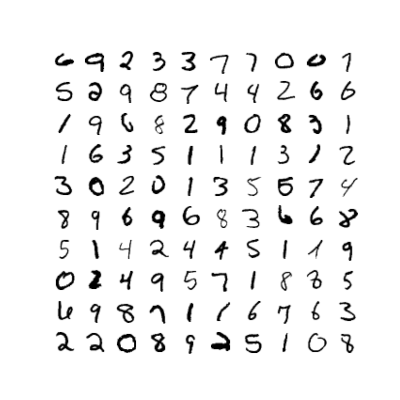 6 9 2 3 3 7 7 0 0 7
5 2 9 8 7 4 4 2 6 6
1 9 6 8 2 9 0 8 3 1
1 6 3 5 1 1 1 3 1 2
3 0 2 0 1 3 5 5 7 4
8 9 6 9 6 8 3 6 6 8
5 1 4 2 4 4 5 1 1 9
0 2 4 9 5 7 1 8 8 5
6 9 8 7 1 1 6 7 6 3
2 2 0 8 9 2 5 1 0 8